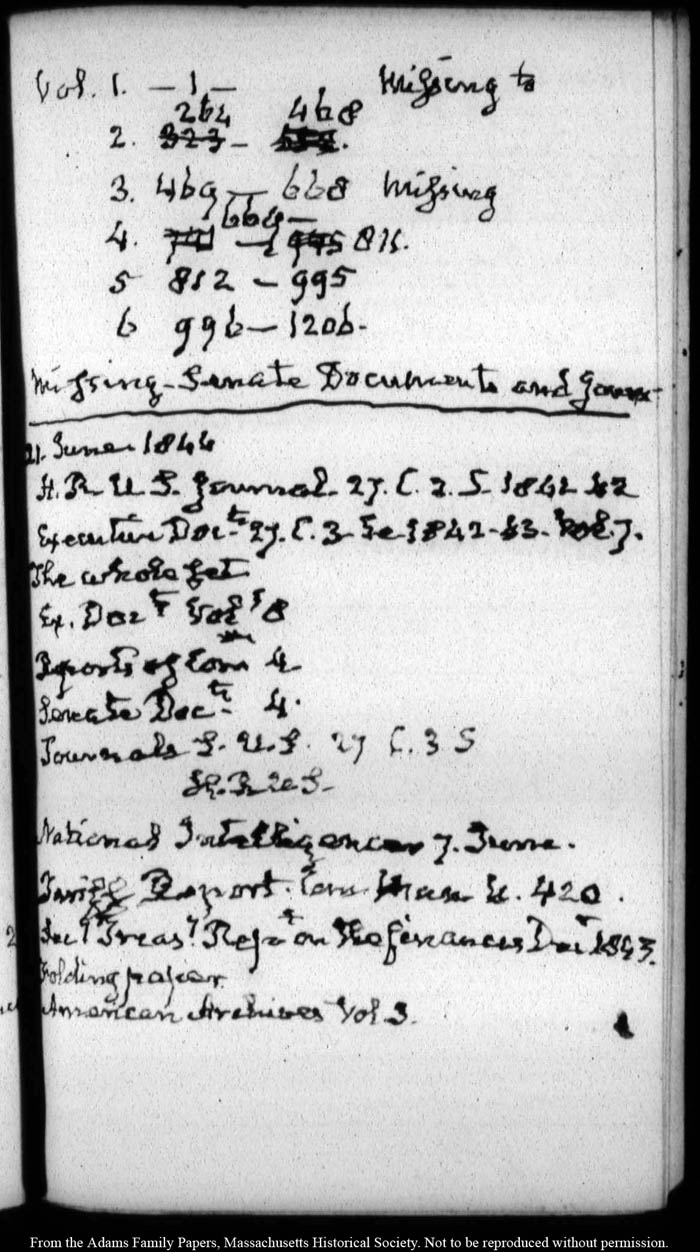 Vol. 1. — 1 — Missing to
264 468
2. 323 —
3. 469 — 668 Missing
669 —
4. 741 — 995 811.
5 812 — 995
6 996 — 1206.
Missing Senate Documents and Journ
21. June 1844
H. R. U. S. Journal. 27. C. 2. S. 1842
Executive Doc.ts 27. C. 3 Se 1842-43. Vol. 7.
The whole Set
Ex. Doc.ts Vol.s 8
Reports of Com 4
Senate Doc.ts 4.
Journals S. U. S. 27 C. 3 S
H. R. U. S.
National Intelligencer 7. June.
Tariff Report. Com 420.
Sec.y Treas.y Rep.t on the finances Dec.r 1843.
Folding paper
American Archives Vol 3.
From the Adams Family Papers, Massachusetts Historical Society. Not to be reproduced without permission.